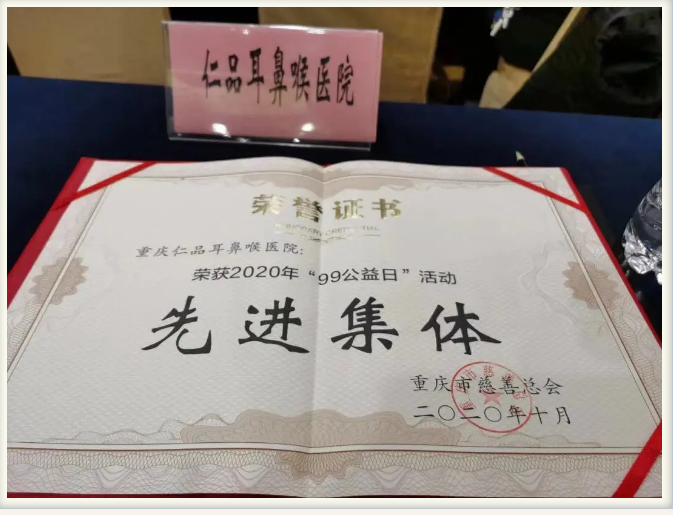 仁品耳鼻喉医院
荣誉证书
重庆仁品耳鼻喉医院:
荣获2020年“99公益日”活动
先进集体
重庆市慈善总会
二〇二〇年十月